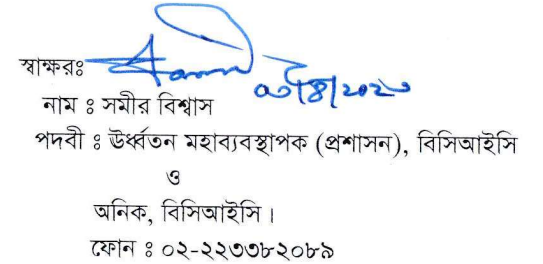 স্বাক্ষরঃ
নাম ঃ সমীর বিশ্বাস
পদবী ঃ ঊর্ধ্বতন মহাব্যবস্থাপক (প্রশাসন), বিসিআইসি
ও
অনিক, বিসিআইসি।
ফোন ঃ ০২-২২৩৩৮২০৮৯